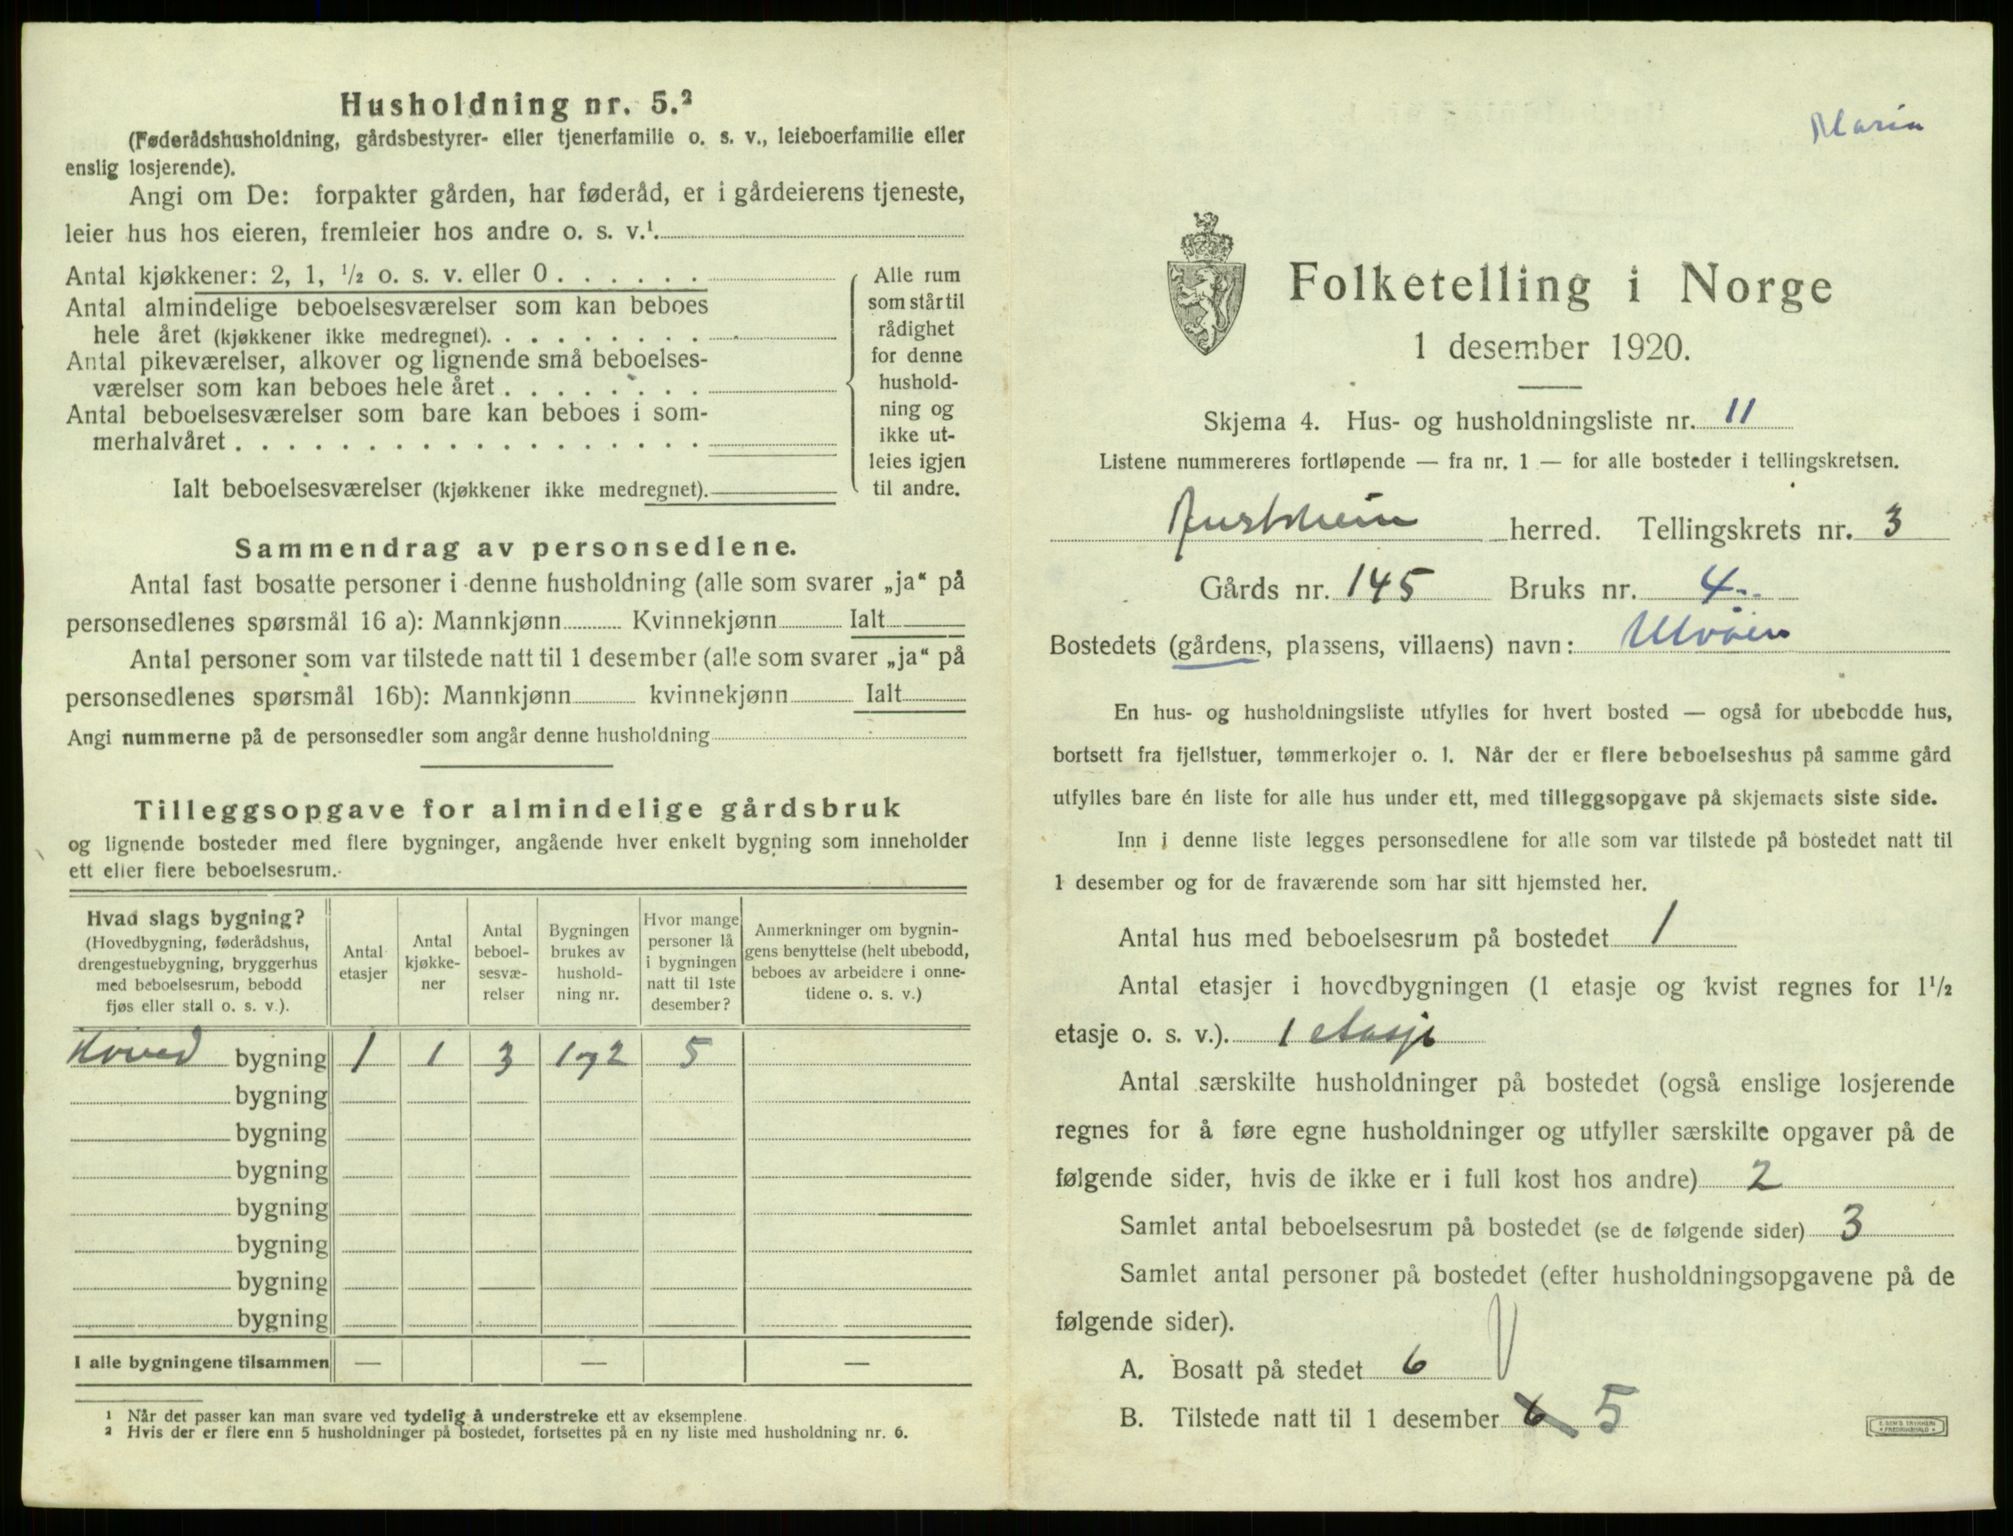 Husholdning nr. 5.²
(Føderådshusholdning, gårdsbestyrer- eller tjenerfamilie o. s. v., leieboerfamilie eller
enslig losjerende).
Angi om De: forpakter gården, har føderåd, er i gårdeierens tjeneste,
leier hus hos eieren, fremleier hos andre o. s. v.¹
Antal kjøkkener: 2, 1, ½ o. s. v. eller 0 . . . . . .
Antal almindelige beboelsesværelser som kan beboes
hele året (kjøkkener ikke medregnet). . . . . . . . .
Antal pikeværelser, alkover og lignende små beboelses-
værelser som kan beboes hele året . . . . . . . .
Antal beboelsesværelser som bare kan beboes i som-
merhalvåret . . . . . . . . . . . . . . . . . .
Ialt beboelsesværelser (kjøkkener ikke medregnet).
Alle rum
som står til
rådighet
for denne
hushold-
ning og
ikke ut-
leies igjen
til andre.
Sammendrag av personsedlene.
Antal fast bosatte personer i denne husholdning (alle som svarer „ja“ på
personsedlenes spørsmål 16 a): Mannkjønn Kvinnekjønn Ialt
Antal personer som var tilstede natt til 1 desember (alle som svarer „ja“ på
personsedlenes spørsmål 16b): Mannkjønn kvinnekjønn Ialt
Angi nummerne på de personsedler som angår denne husholdning
Tilleggsopgave for almindelige gårdsbruk
og lignende bosteder med flere bygninger, angående hver enkelt bygning som inneholder
ett eller flere beboelsesrum.
Hvad slags bygning?
(Hovedbygning, føderådshus,
drengestuebygning, bryggerhus
med beboelsesrum, bebodd
fjøs eller stall o. s. v.).
Antal
etasjer
Antal
kjøkke-
ner
Antal
beboel-
sesvæ-
relser
Bygningen
brukes av
hushold-
ning nr.
Hvor mange
personer lå
i bygningen
natt til 1ste
desember?
Anmerkninger om bygnin-
gens benyttelse (helt ubebodd,
beboes av arbeidere i onne-
tidene o. s. v.)
Hoved bygning 1 1 3 1 og 2 5
bygning
bygning
bygning
bygning
bygning
bygning
bygning
I alle bygningene tilsammen — — —
¹ Når det passer kan man svare ved tydelig å understreke ett av eksemplene.
² Hvis der er flere enn 5 husholdninger på bostedet, fortsettes på en ny liste med husholdning nr. 6.
Maria
Folketelling i Norge
1 desember 1920.
Skjema 4. Hus- og husholdningsliste nr. 11
Listene nummereres fortløpende — fra nr. 1 — for alle bosteder i tellingskretsen.
herred. Tellingskrets nr. 3
Gårds nr. 145 Bruks nr. 4
Bostedets (gårdens, plassens, villaens) navn: Ulvøen
En hus- og husholdningsliste utfylles for hvert bosted — også for ubebodde hus,
bortsett fra fjellstuer, tømmerkojer o. l. Når der er flere beboelseshus på samme gård
utfylles bare én liste for alle hus under ett, med tilleggsopgave på skjemaets siste side.
Inn i denne liste legges personsedlene for alle som var tilstede på bostedet natt til
1 desember og for de fraværende som har sitt hjemsted her.
Antal hus med beboelsesrum på bostedet 1
Antal etasjer i hovedbygningen (1 etasje og kvist regnes for 1½
etasje o. s. v.). 1 etasje
Antal særskilte husholdninger på bostedet (også enslige losjerende
regnes for å føre egne husholdninger og utfyller særskilte opgaver på de
følgende sider, hvis de ikke er i full kost hos andre) 2
Samlet antal beboelsesrum på bostedet (se de følgende sider) 3
Samlet antal personer på bostedet (efter husholdningsopgavene på de
følgende sider).
A. Bosatt på stedet 6
B. Tilstede natt til 1 desember 6 5